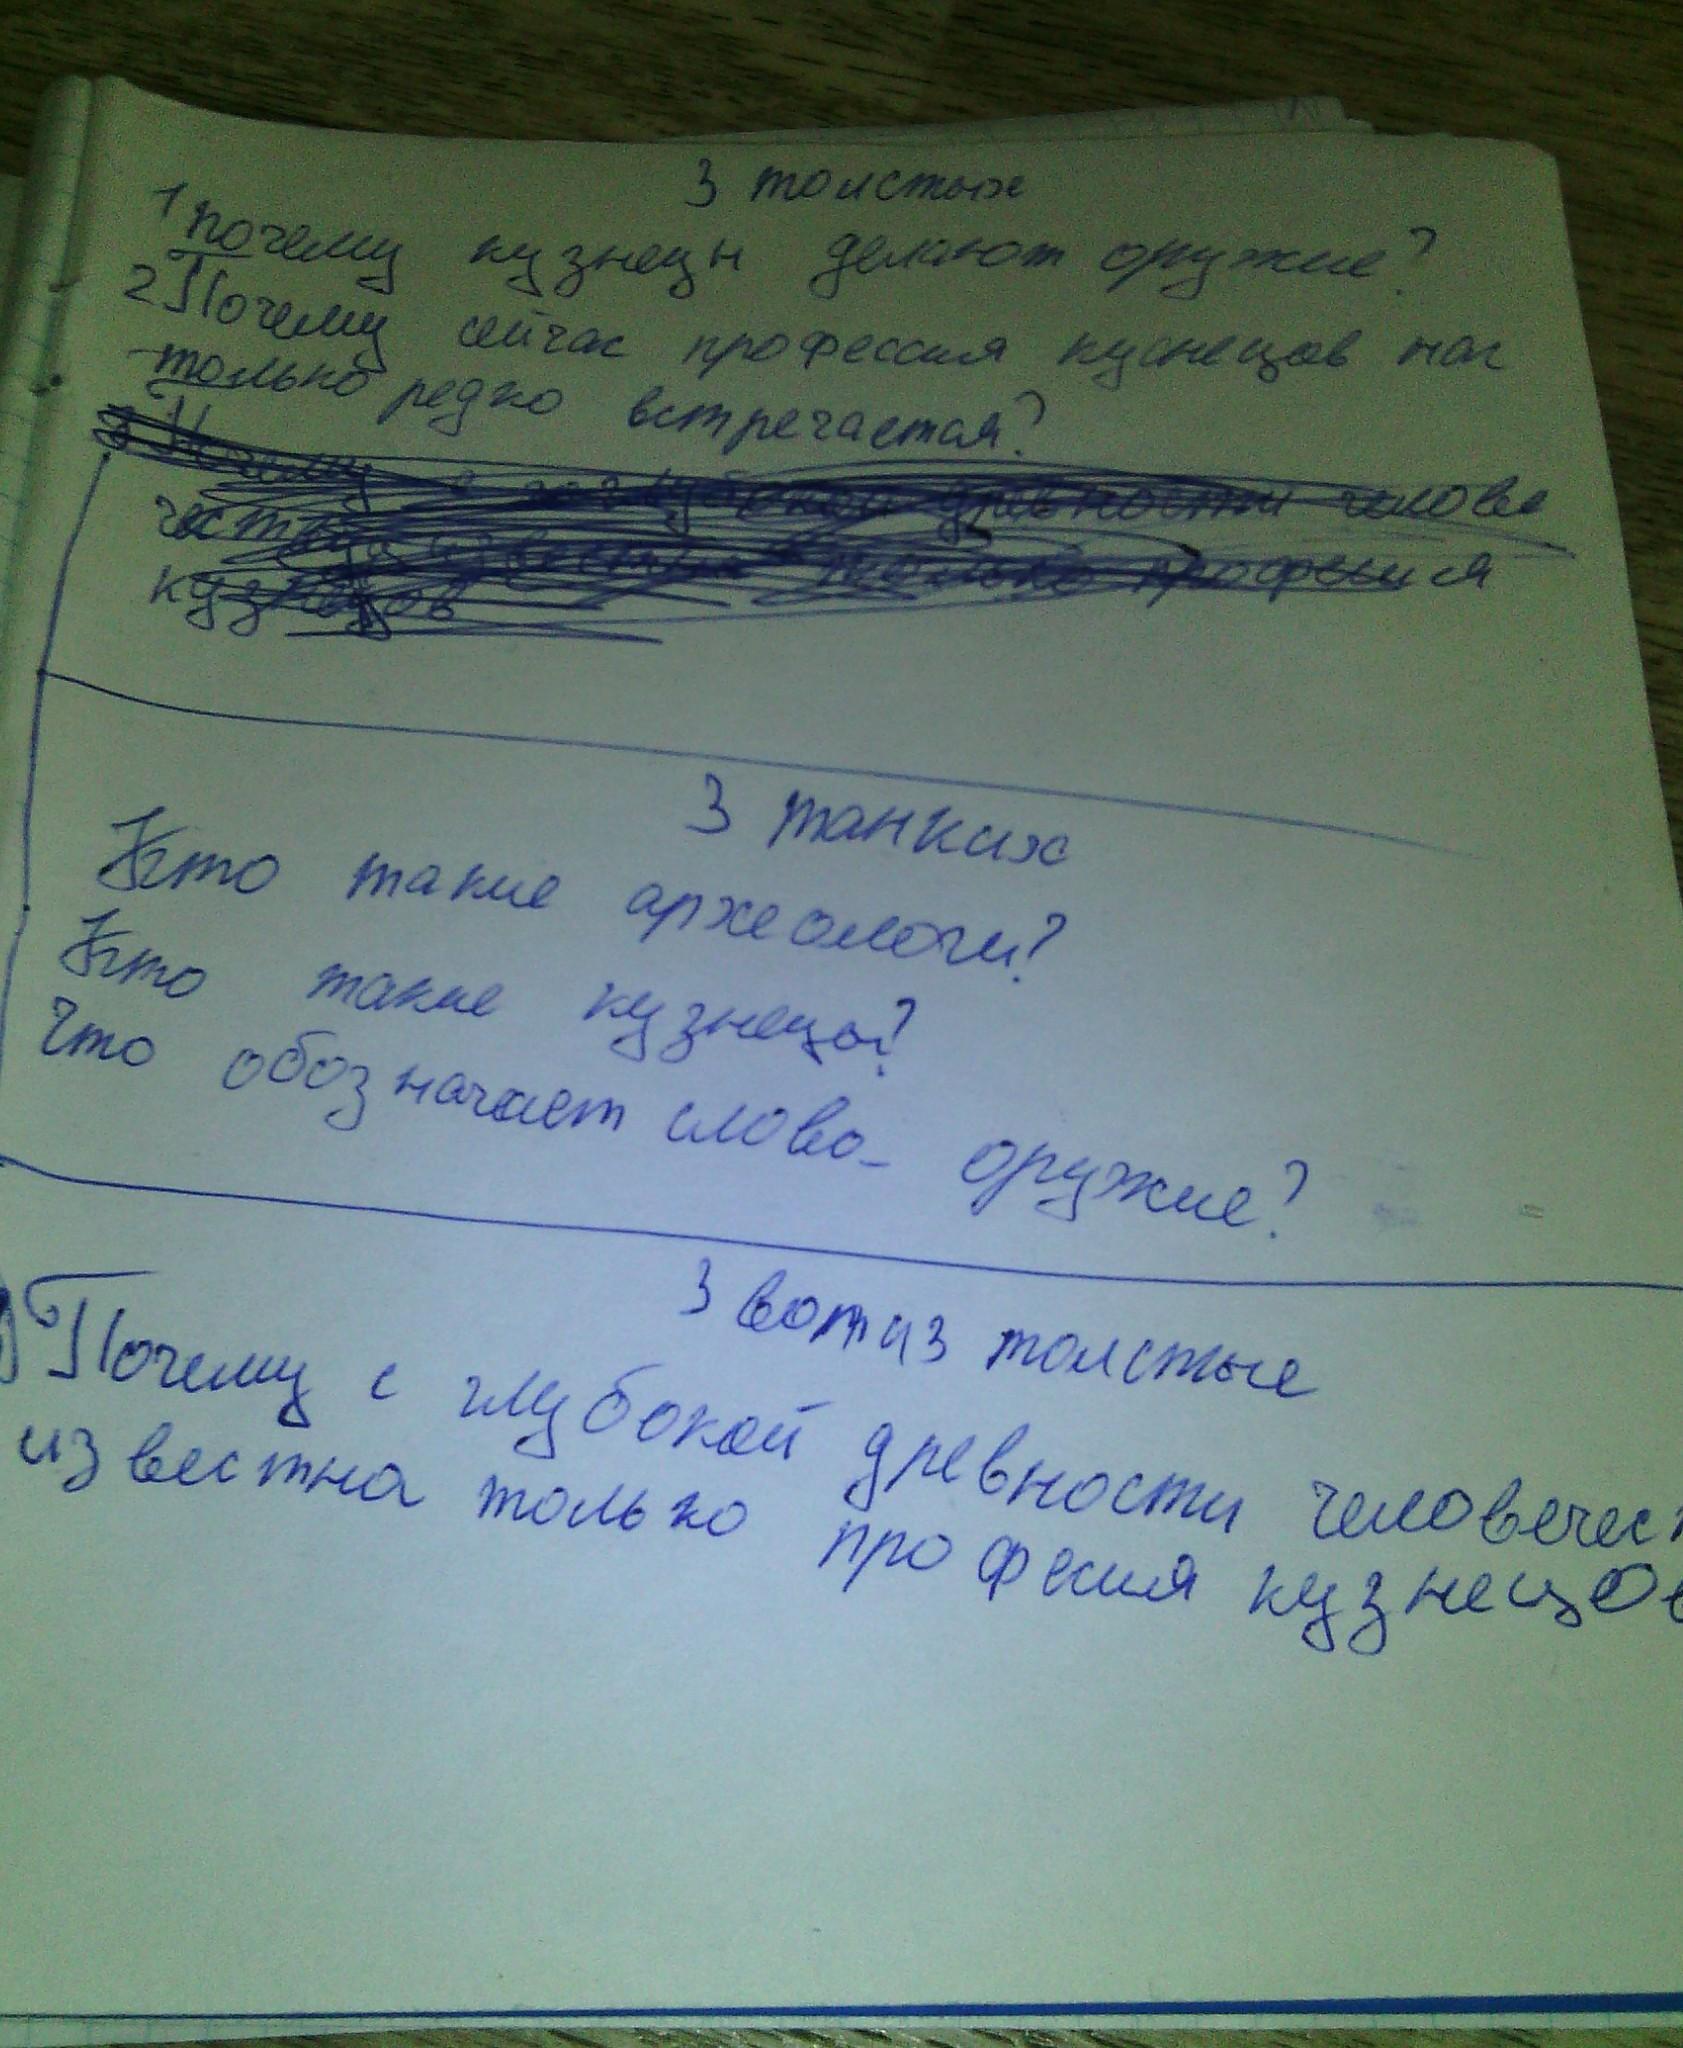 3 толстых
1 почему кузнецы делают оружие?
2 Почему сейчас профессия куснецов нас
только редко встречается?
древности челове
чест
только профессия
кузнецов
3 танких
Кто такие археологи?
Кто такие кузнецы?
Что обозначает слово- оружие?
3 вот из толстые
Почему с глубокой древности человечест
известна только професия кузнецов